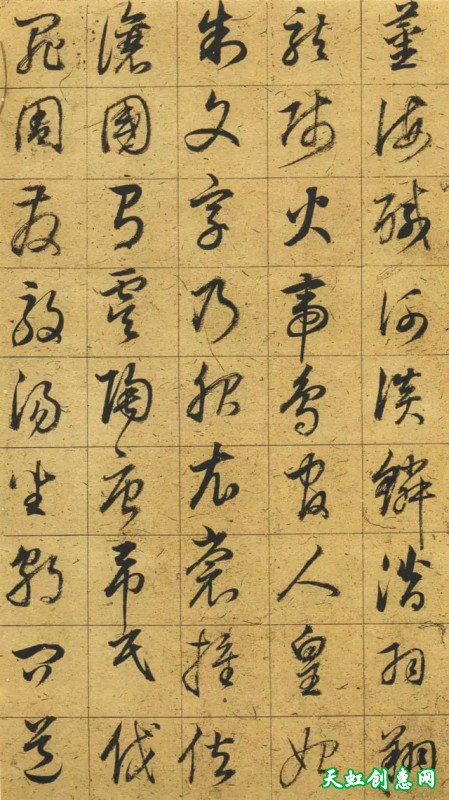 薑海鹹河淡鱗潛羽翔
龍師火帝鳥官人皇始
制文字乃服衣裳推位
讓國有虞陶唐弔民伐
罪周發殷湯坐朝問道
天虹创惠网